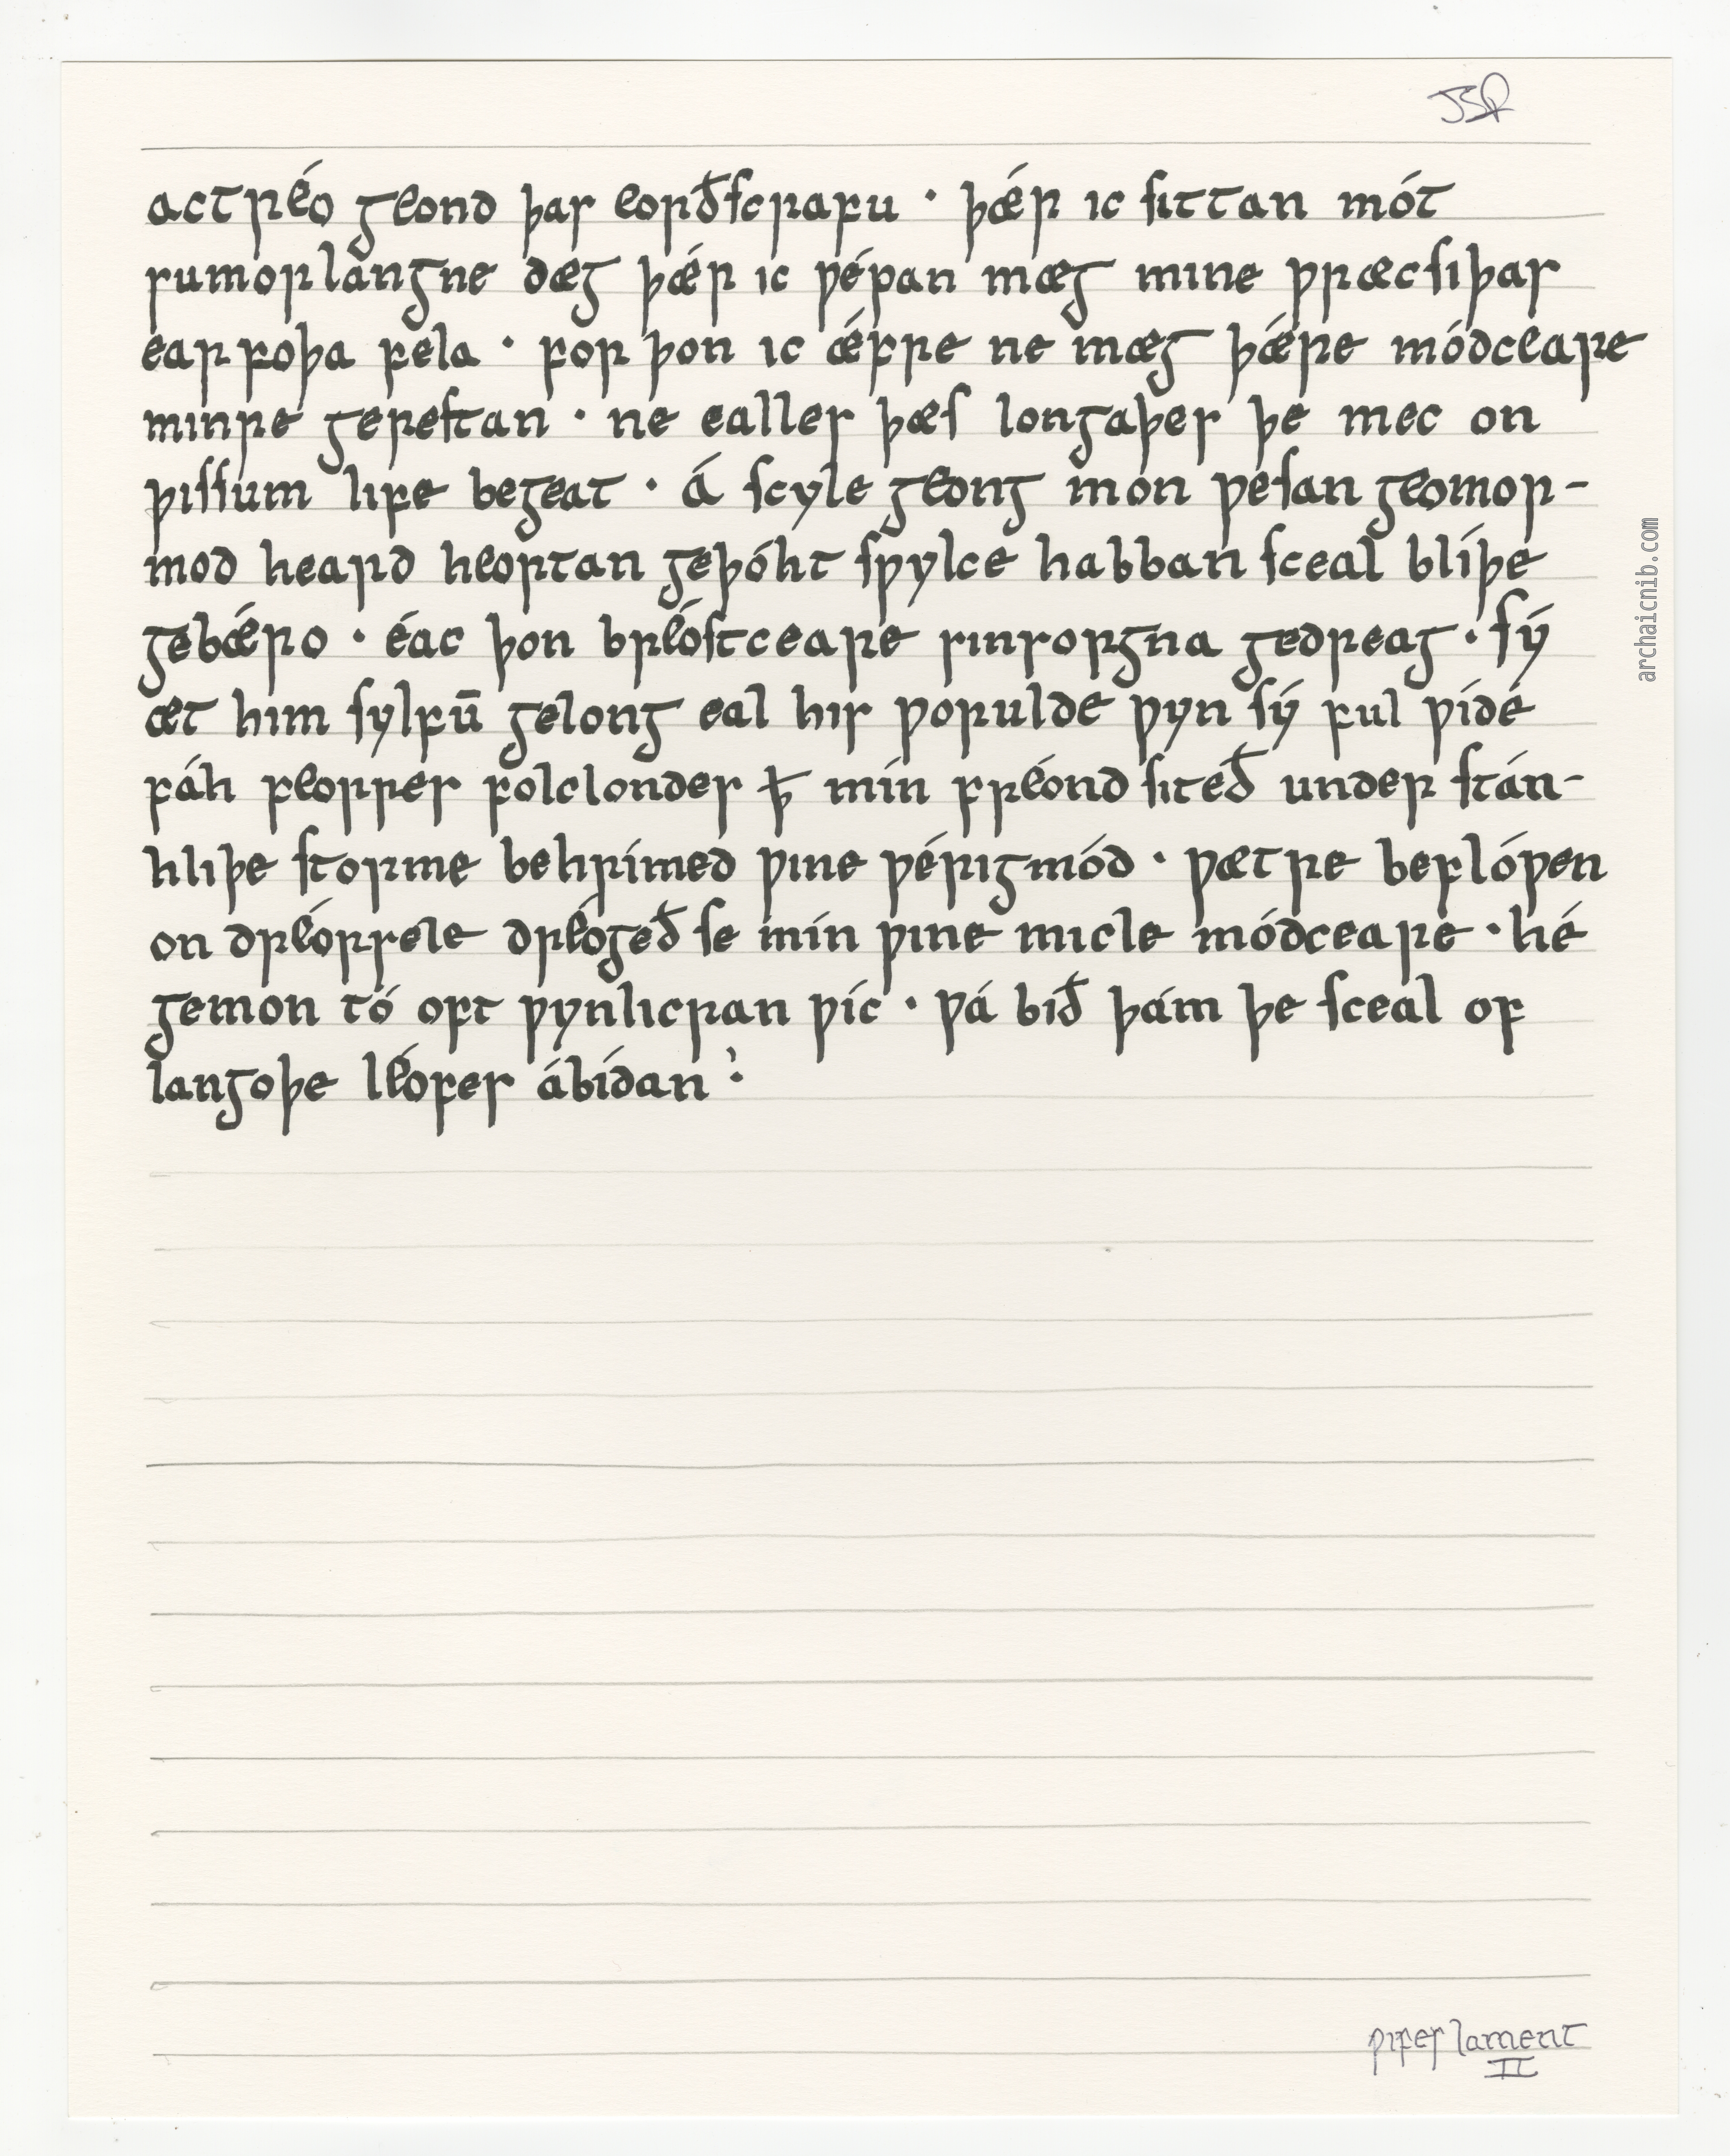 actréo geond þas eorðſcrafu · þǽr ic ſittan mót
sumorlangne dæg þǽr ic ƿépan mæg mine ƿræcſiþas
earfoþa fela · for þon ic ǽfre ne mæg þǽre módceare
minre gereſtan · ne ealles þæſ longaþes þe mec on
þiſſum life begeat · Á ſcyle geong mon ƿeſan geomor-
mod heard heortan geþóht ſƿylce habban ſceal blíþe
gebǽro · éac þon bréoſtceare sinsorgna gedreag · ſý
æt him ſylfū gelong eal his ƿorulde ƿyn ſý ful ƿíde
fáh feorres folclondes ꝥ mín fréond ſiteð under ſtán-
hliþe ſtorme behrímed ƿine ƿérigmód · ƿætre beflóƿen
on dréorsele dréogeð ſe mín ƿine micle módceare · hé
gemon tó oft ƿynlicran ƿíc · ƿá bið þám þe ſceal of
langoþe léofes ábídan ⁏
archaicnib.com
ƿifes lament
II